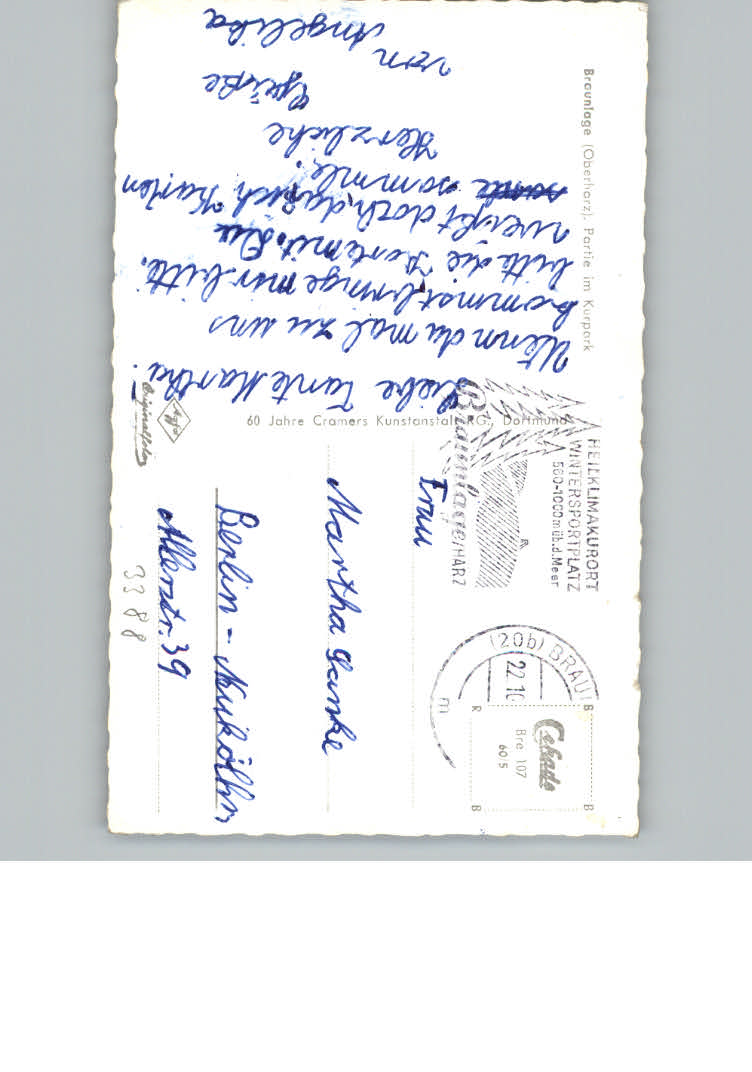 Braunlage (Oberharz). Partie im Kurpark
Liebe Tante Martha!
Wenn du mal zu uns
kommst bringe mir bitte
bitte die Karte mit. Du
weißt doch, daß ich Karten
sammle.
Herzliche
Grüße
von Angelika
60 Jahre Cramers Kunstanstalt KG., Dortmund
Agfa
Originalfoto
HEILKLIMAKURORT
WINTERSPORTPLATZ
560-1000m üb.d.Meer
Braunlage/HARZ
(20b) BRAUN
22.10
m
Cekade
Bre 107
60/5
B
B
R
B
Frau
Martha Ganke
Berlin-Neukölln
Allerstr. 39
3388